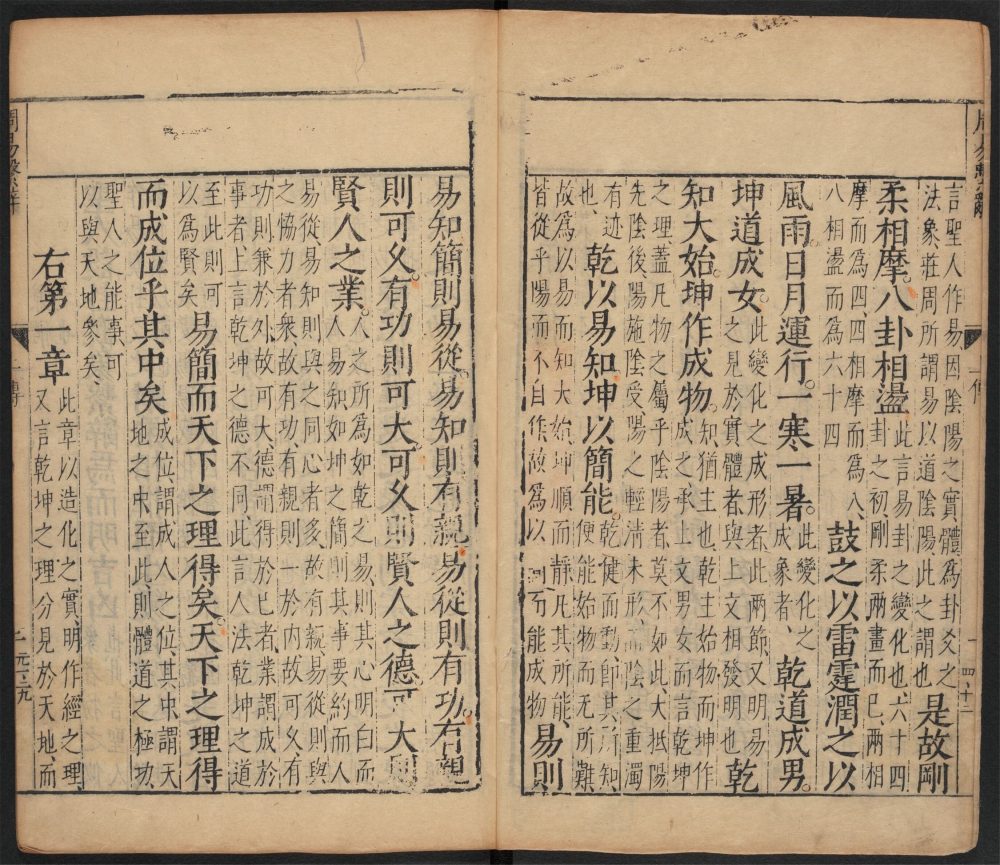 言聖人作易因陰陽之實體爲卦爻之
法象莊周所謂易以道陰陽此之謂也
是故剛
柔相摩。八卦相盪
此言易卦之變化也、六十四
卦之初、剛柔兩畫而已、兩相
摩而爲四、四相摩而爲八、
八相盪而爲六十四
鼓之以雷霆潤之以
風雨。日月運行。一寒一暑。
此變化之
成象者、
乾道成男。
坤道成女。
此變化之成形者、此兩節、又明易
之見於實體者、與上文相發明也、
乾
知大始。坤作成物。
知、猶主也、乾主始物、而坤作
成之、承上文男女而言乾坤
之理、蓋凡物之屬乎陰陽者、莫不如此、大抵陽
先陰後、陽施陰受、陽之輕清未形、而陰之重濁
有迹
也、
乾以易知。坤以簡能。
乾健而動、卽其所知、
便能始物而无所難
故爲以易而知大始、坤順而靜、凡其所能、
皆從乎陽而不自作、故爲以簡而能成物
易則
易知簡則易從。易知則有親易從則有功。有親
則可久。有功則可大可久則賢人之德可大則
賢人之業。
人之所爲、如乾之易、則其心明白而
人易知、如坤之簡、則其事要約而人
易從、易知、則與之同心者多、故有親、易從、則與
之協力者衆、故有功、有親、則一於內、故可久、有
功、則兼於外、故可大、德、謂得於己者、業、謂成於
事者、上言乾坤之德不同、此言人法乾坤之道
至此則可
以爲賢矣
易簡而天下之理得矣。天下之理得
而成位乎其中矣
成位、謂成人之位、其中、謂天
地之中、至此則體道之極功
聖人之能事、可
以與天地參矣、
右第一章
此章以造化之實、明作經之理
又言乾坤之理、分見於天地、而